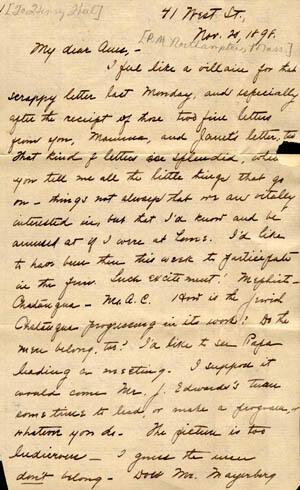 [To Henry
41 West St.,
Nov. 20, 1898.
[P.M. Northampton, Mass.]
My dear
I feel like a villain for that
scrappy letter last Monday, and especially
after the receipt of those two fine letters
from you, Mamma, and Janet's letter, too
That kind of letters are splendid, when
you tell me all the little things that go
on — things not always that we are vitally
interested in, but that I'd know and be
amused at if I were at home. I'd like
to have been there this week to participate
in the fun. Such excitement!
Chatauqua — M. A. C. How is the
Chatauqua progressing in its work? Do the
men belong, too? I'd like to see Papa
leading a meeting. I suppose it
would come Mr. J. Edwards's turn
sometimes to lead, or make a program, or
whatever you do. The picture is too
ludicrous — I guess the men
don't belong — Does Mr. Mayerberg